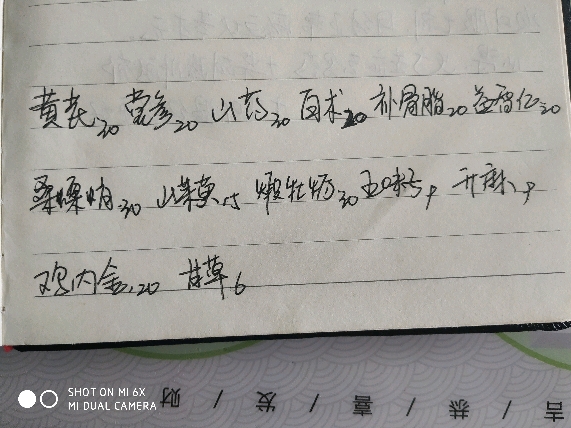 黄芪30 党参20 山药30 白术20 补骨脂20 益智仁20
桑螵蛸30 山茱萸15 煅牡蛎30 五味子9 升麻9
鸡内金20 甘草6
SHOT ON MI 6X
MI DUAL CAMERA
财 / 发 / 喜 / 恭 / 吉